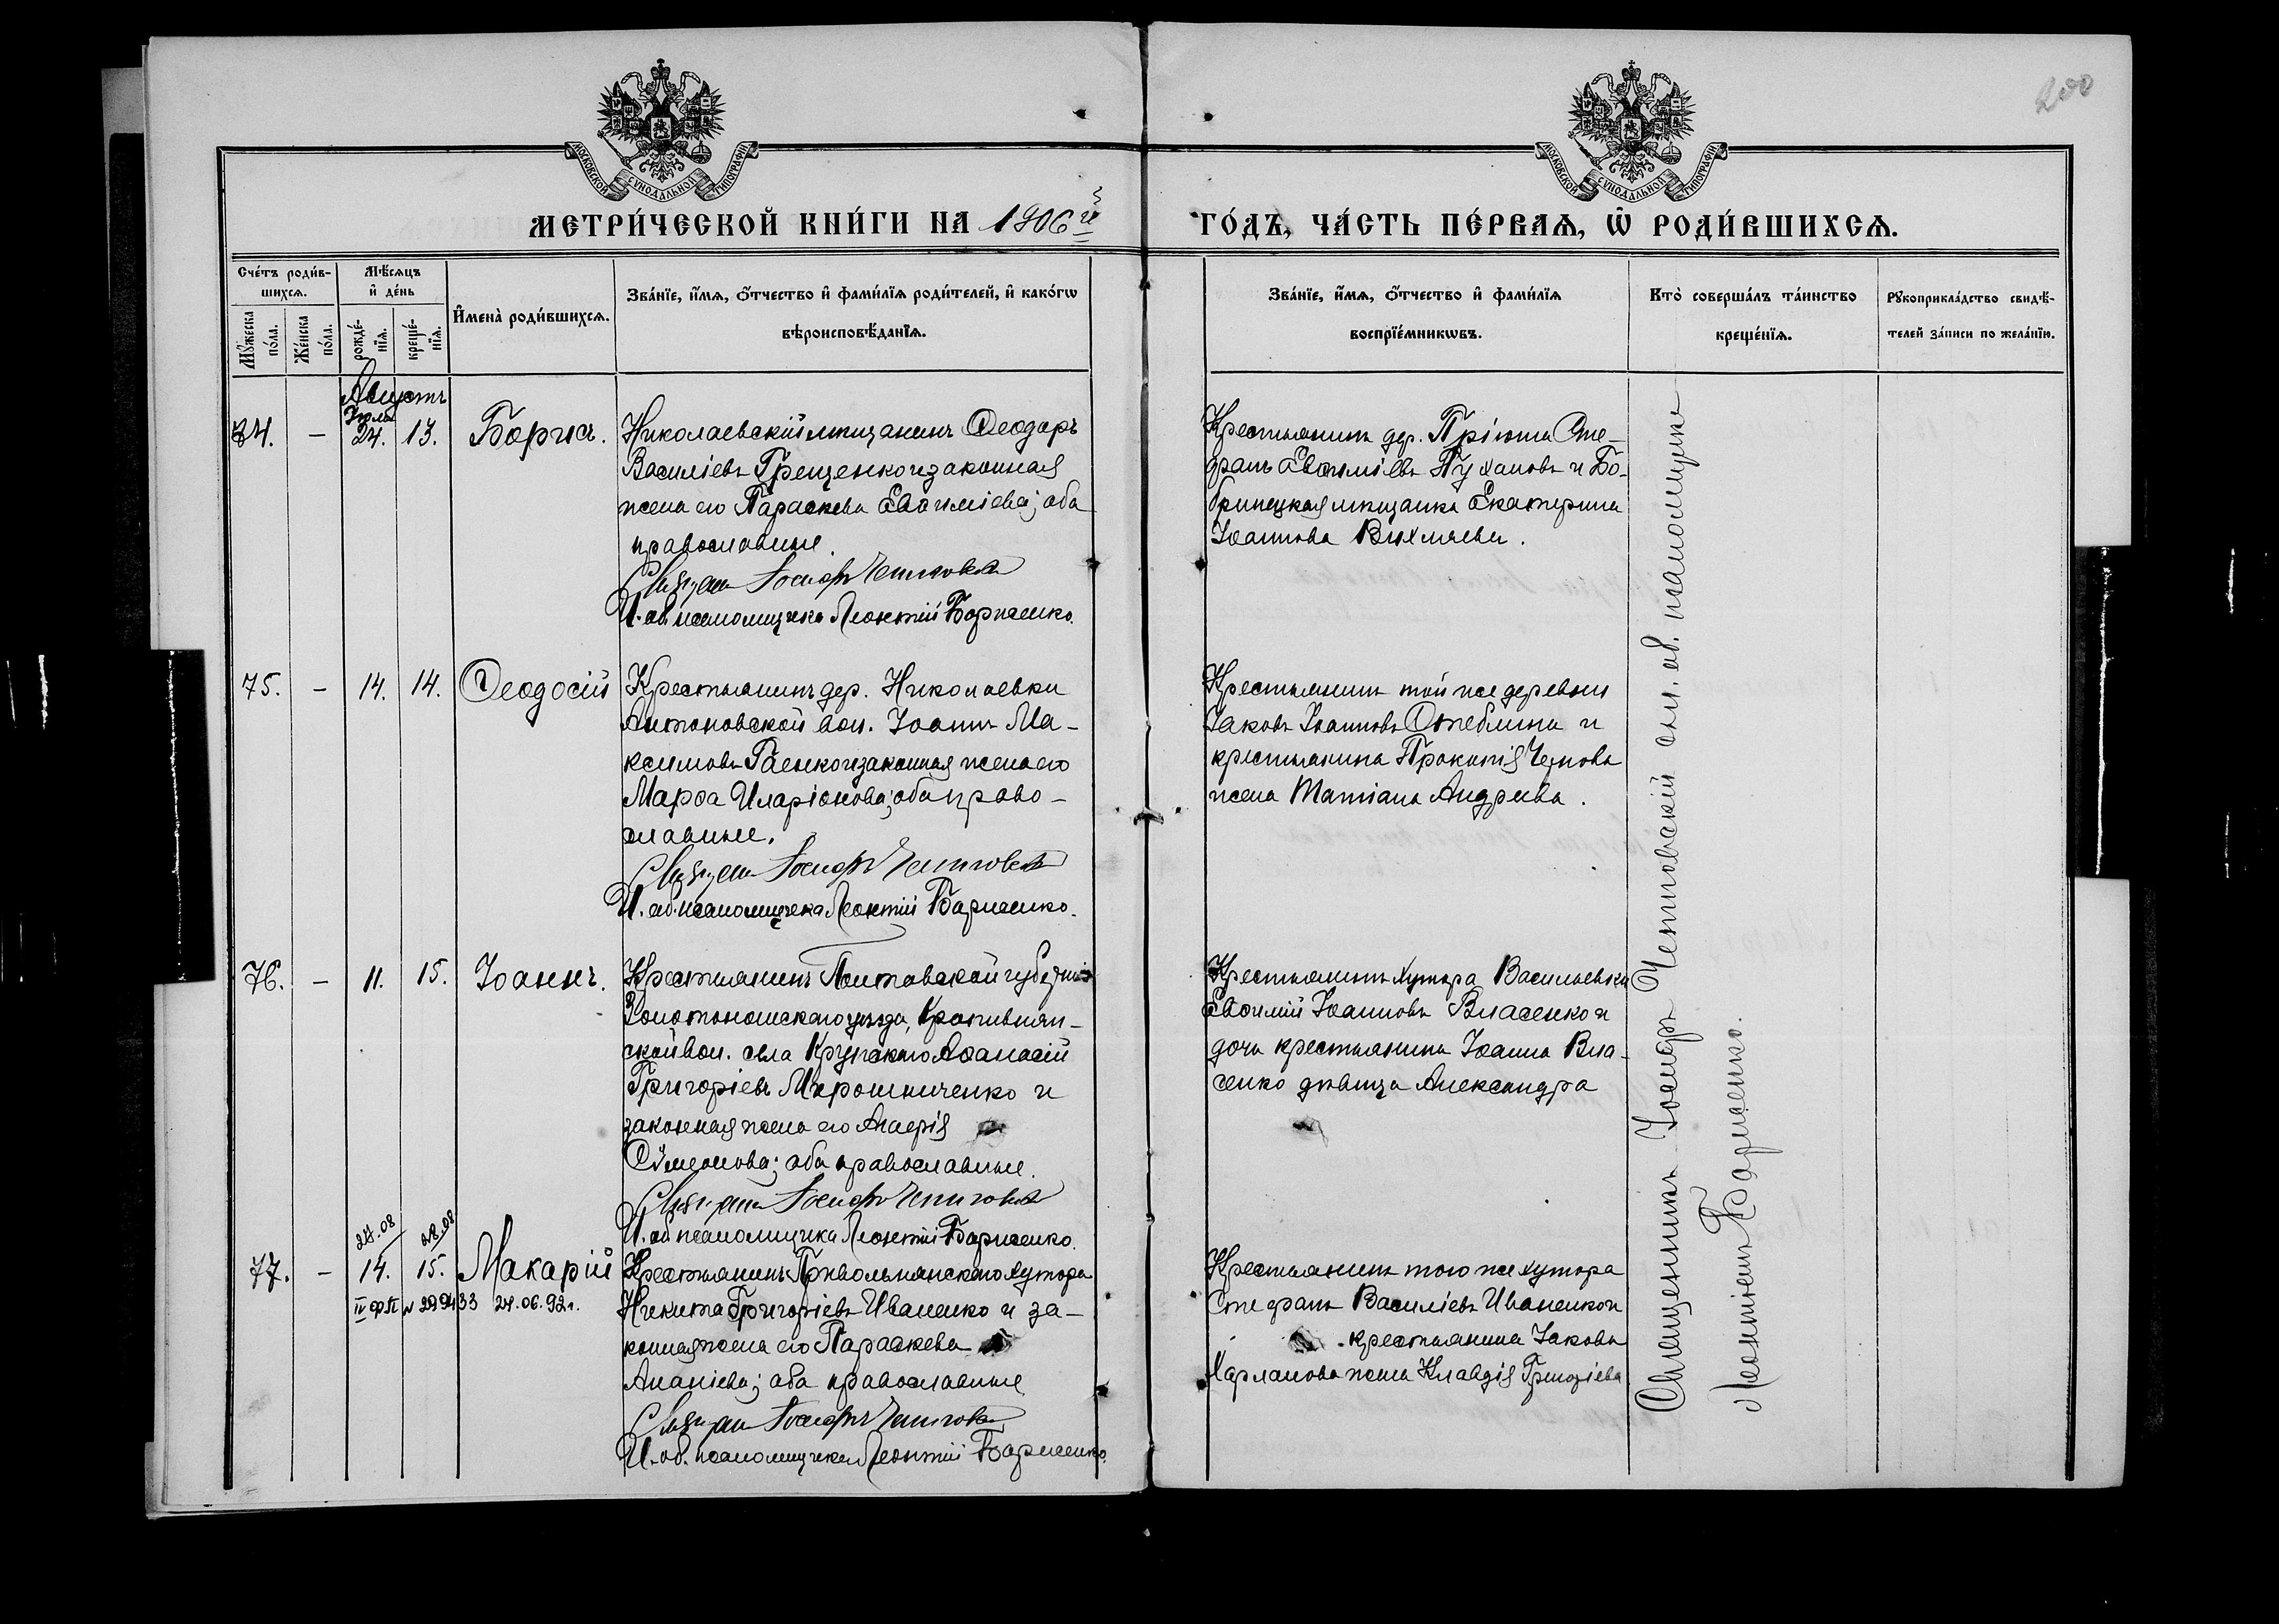 200
МОСКОВСКОЙ СѴНОДАЛЬНОЙ ТИПОГРАФІИ
МОСКОВСКОЙ СѴНОДАЛЬНОЙ ТИПОГРАФІИ
МЕТРИ́ЧЕСКОЙ КНИ́ГИ НА 1906 г
ГО́ДЪ, ЧА́СТЬ ПЕ́РВАѦ, Ѿ РОДИ́ВШИХСѦ.
Сче́тъ роди́в-
шихсѧ.
Мꙋ́жеска по́ла.
Же́нска по́ла.
Мѣ́сѧцъ
и҆ де́нь
рожде́-
нїѧ.
креще́-
нїѧ.
И҆мена̀ роди́вшихсѧ.
Зва́нїе, и҆́мѧ, ѻ҆́тчество и҆ фами́лїѧ роди́телей, и҆ како́гѡ
вѣроисповѣ́данїѧ.
Зва́нїе, и҆́мѧ, ѻ҆́тчество и҆ фами́лїѧ
воспрїе́мникѡвъ.
Кто̀ соверша́лъ та́инство
креще́нїѧ.
Рꙋкоприкла́дство свидѣ́-
телей за́писи по жела́нїю.
Августъ
Іюля
74. — 24. 13. Борисъ.
Николаевскій мѣщанинъ Ѳеодоръ
Василіевъ Грещенко и законная
жена его Параскева Евѳиміева; оба
православные.
Священ. Іосифъ
И. об. псаломщика Леонтій Борисенко.
Крестьянинъ дер. Пріюта Сте-
фанъ Евѳиміевъ Пухановъ и Бо-
бринецкая мѣщанка Екатерина
Іоаннова
75. — 14. 14. Ѳеодосій
Крестьянинъ дер. Николаевки
Антоновской вол. Іоаннъ Ма-
ксимовъ Гаенко и законная жена его
Марѳа Иларіонова; оба право-
славные.
Священ. Іосифъ
И. об. псаломщика Леонтій Борисенко.
Крестьянинъ той же деревни
Іаковъ Іоанновъ Стеблина и
крестьянина Прокопія Чернова
жена Татіана Андреева.
76. — 11. 15. Іоаннъ.
Крестьянинъ Полтавской губерніи
Золотоношскаго уѣзда, Кропивнян-
ской вол. села Крупскаго Аѳанасій
Григоріевъ Мирошниченко и
законная жена его
Сѵмеонова; оба православные.
Священ. Іосифъ
И. об. псаломщика Леонтій Борисенко.
Крестьянинъ хутора Васильевка
Евѳимій Іоанновъ Власенко и
дочь крестьянина Іоанна Вла-
сенко дѣвица Александра
27.08 28.08
77. — 14. 15. Макарій
24.06.92г.
Крестьянинъ Привольнянскаго хутора
Никита Григоріевъ Иваненко и за-
конная жена его Параскева
Ананіева; оба православные
Священ. Іосифъ
И. об. псаломщика Леонтій Борисенко.
Крестьянинъ того же хутора
Стефанъ Василіевъ Иваненко и
крестьянина Іакова
Харланова жена Клавдія Григоріева
Священникъ Іосифъ исп. об. псаломщика
Леонтіемъ Борисенко.